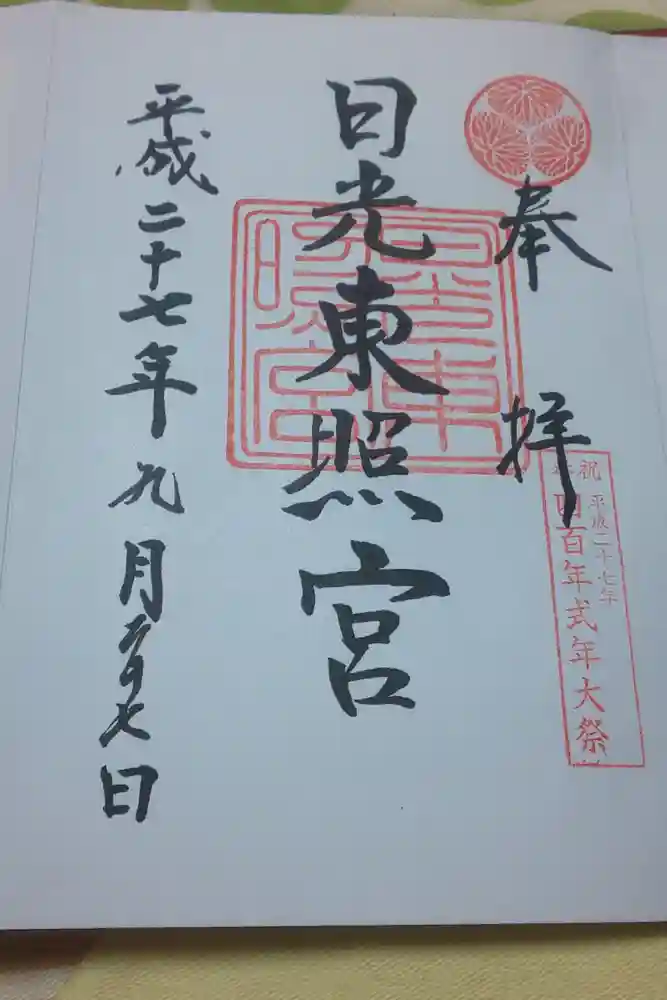 奉拝
祝 平成二十七年
四百年式年大祭
日光東照宮
平成二十七年九月二十七日